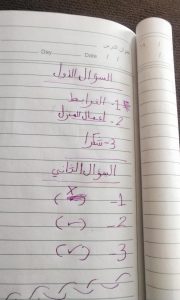 Day Date / /
السؤال الاول
1- الخرائط
2- أعمال المنزل
3- شكرا
السؤال الثاني
1- (×)
2- (✓)
3- (✓)